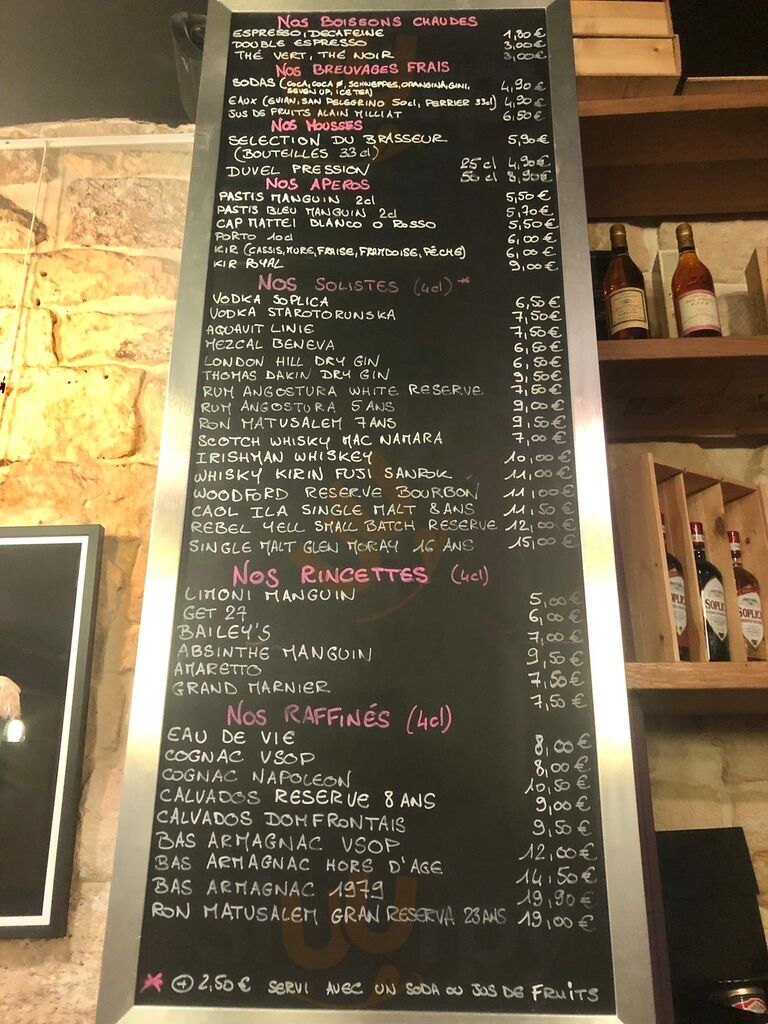 NOS BOISSONS CHAUDES
ESPRESSO, DECAFEINE 1,80€
DOUBLE ESPRESSO 3,00€
THÉ VERT, THÉ NOIR 3,00€
NOS BREUVAGES FRAIS
SODAS (COCA, COCA Ø, SCHWEPPES, ORANGINA, GINI, 4,90€
SEVEN UP, ICE TEA)
EAUX (EVIAN, SAN PELEGRINO 50cl, PERRIER 33cl) 4,90€
JUS DE FRUITS ALAIN MILLIAT 6,50€
NOS MOUSSES
SELECTION DU BRASSEUR 5,90€
(BOUTEILLES 33 cl)
25 cl 4,90€
DUVEL PRESSION 50 cl 8,90€
NOS APEROS
PASTIS MANGUIN 2cl 5,50€
PASTIS BLEU MANGUIN 2cl 5,70€
CAP MATTEI BLANCO O ROSSO 5,50€
PORTO 10cl 6,00€
KIR (CASSIS, MURE, FRAISE, FRAMBOISE, PÊCHE) 6,00€
KIR ROYAL 9,00€
NOS SOLISTES (4cl) *
VODKA SOPLICA 6,50€
VODKA STAROTORUNSKA 7,50€
AQUAVIT LINIE 7,50€
MEZCAL BENEVA 6,50€
LONDON HILL DRY GIN 6,50€
THOMAS DAKIN DRY GIN 9,50€
RUM ANGOSTURA WHITE RESERVE 7,50€
RUM ANGOSTURA 5 ANS 9,00€
RON MATUSALEM 7 ANS 9,50€
SCOTCH WHISKY MAC NAMARA 7,00€
IRISHMAN WHISKEY 10,00€
WHISKY KIRIN FUJI SANROK 11,00€
WOODFORD RESERVE BOURBON 11,00€
CAOL ILA SINGLE MALT 8 ANS 11,50€
REBEL YELL SMALL BATCH RESERVE 12,00€
SINGLE MALT GLEN MORAY 16 ANS 15,00€
NOS RINCETTES (4cl)
LIMONI MANGUIN 5,00€
GET 27 6,00€
BAILEY'S 7,00€
ABSINTHE MANGUIN 9,50€
AMARETTO 7,50€
GRAND MARNIER 7,50€
NOS RAFFINÉS (4cl)
EAU DE VIE 8,00€
COGNAC VSOP 8,00€
COGNAC NAPOLEON 10,50€
CALVADOS RESERVE 8 ANS 9,00€
CALVADOS DOMFRONTAIS 9,50€
BAS ARMAGNAC VSOP 12,00€
BAS ARMAGNAC HORS D'AGE 14,50€
BAS ARMAGNAC 1979 19,90€
RON MATUSALEM GRAN RESERVA 23 ANS 19,00€
* + 2,50€ SERVI AVEC UN SODA OU JUS DE FRUITS
SOPLICA